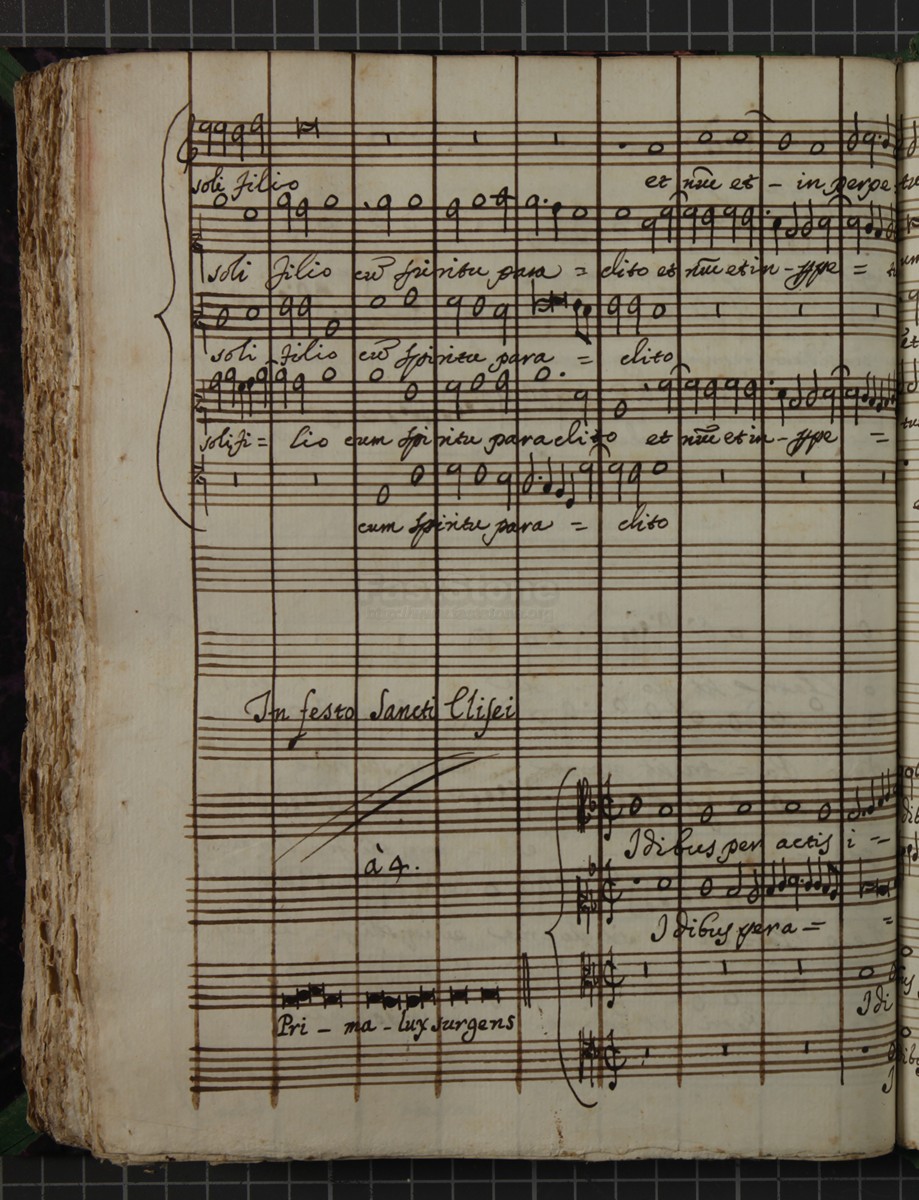 soli filio et nūc et - in perpe tu
soli filio cū spiritu para = clito et nūc et in - ppe = tu
soli filio cū spiritu para = clito
soli fi = lio cum spiritu paraclito et nūc et in - ppe =
cum spiritu para = clito
In festo Sancti Elisei
Idibus per actis i =
à 4.
Idibus pera = =
Idi
Pri - ma - lux surgens